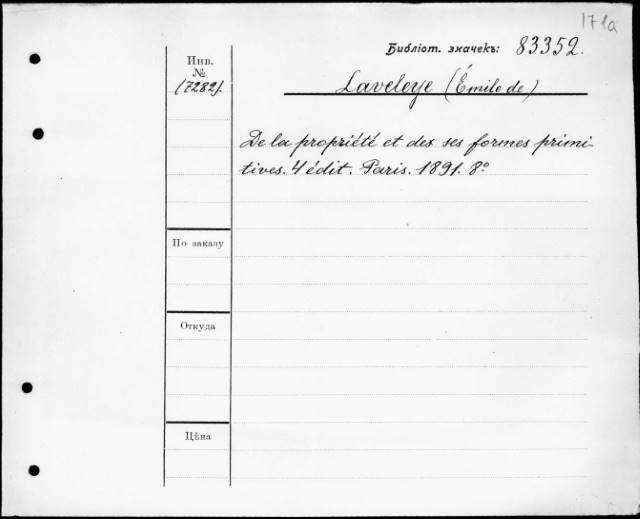 171a
Библіот. значекъ: 83352.
Инв.
№
(7282).
Laveleye (Émile de)
De la propriété et des ses formes primi-
tives. 4 édit. Paris. 1891. 8º
По заказу
Откуда
Цѣна